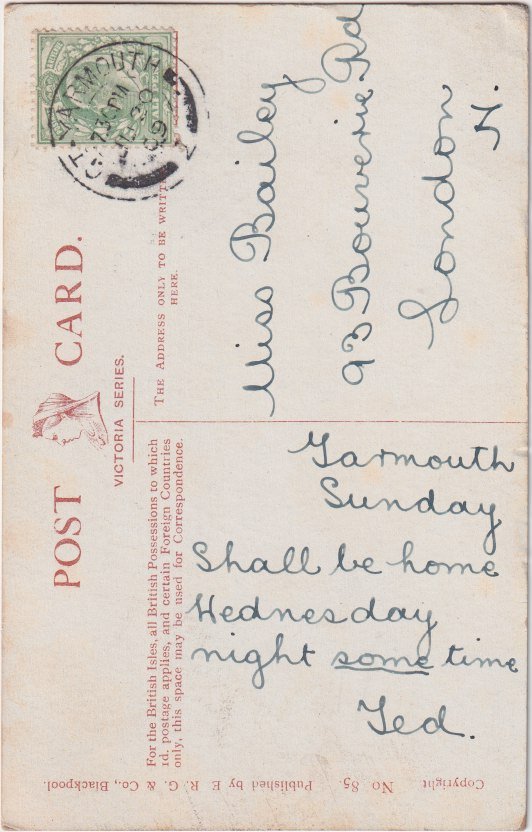 POST CARD.
VICTORIA SERIES.
For the British Isles, all British Possessions to which
1d. postage applies, and certain Foreign Countries
only, this space may be used for Correspondence.
THE ADDRESS ONLY TO BE WRITTE
HERE.
GT. YARMOUTH
Miss Bailey
93 Bouverie Rd
London
N.
Yarmouth
Sunday
Shall be home
Wednesday
night some time
Ted.
Copyright No. 85. Published by E. R. G. & Co., Blackpool.